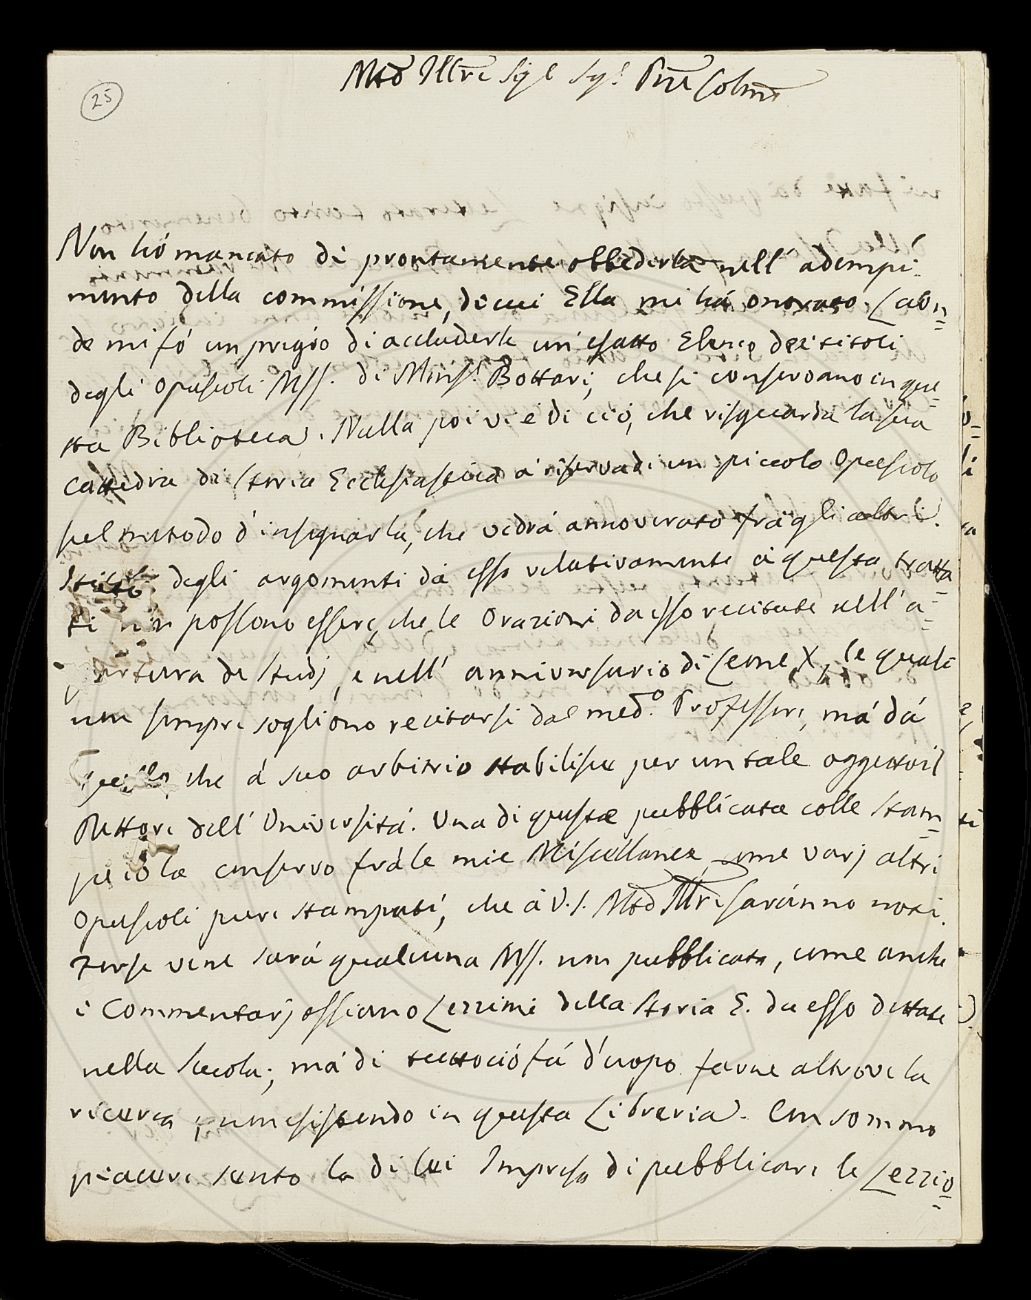 25
Mto Illre Sigr Sigr Pne Colmo
Non hó mancato di prontamente obbedirla nell' adempi=
mento della commissione, di cui Ella mi há onorato. Laon=
de mi fó un pregio di accluderle un' esatto Elenco dei titoli
degli opuscoli Mss. di Monsr Bottari, che si conservano in que=
sta Biblioteca. Nulla poi vi é di ció, che risguarda la sua
Cattedra di Storia Ecclesiastica á riserva di un piccolo Opuscolo
sul metodo d' insegnarla, che vedrá annoverato frá gli altri.
degli argomenti dá esso relativamente á questa tratta=
ti non possono essere, che le Orazioni da esso recitate nell' a=
pertura de Studj, e nell' anniversario di Leone X, le quali
non sempre sogliono recitarsi dal medo. Professore, má dá
quello, che á suo arbitrio stabilisce per un tale oggetto il
Rettore dell' Universitá. Una di queste pubblicata colle stam=
pe io la conservo frá le mie Miscellanee come varj altri
opuscoli pure stampati, che á V. S. Mto Illre saránno noti.
Forse ve ne sará qualcuna Mss. non pubblicata, come anche
i Commentarj ossiano Lezzioni della Storia E. da esso dettate
nella Scuola; má di tuttoció fá d'uopo farne altrove la
ricerca, non esistendo in questa Libreria. Con sommo
piacere sento la di lei Impresa di pubblicare le Lezzio=